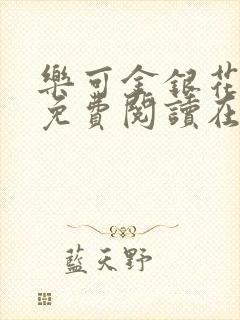 樂可金銀花
免費閱讀在
藍天野